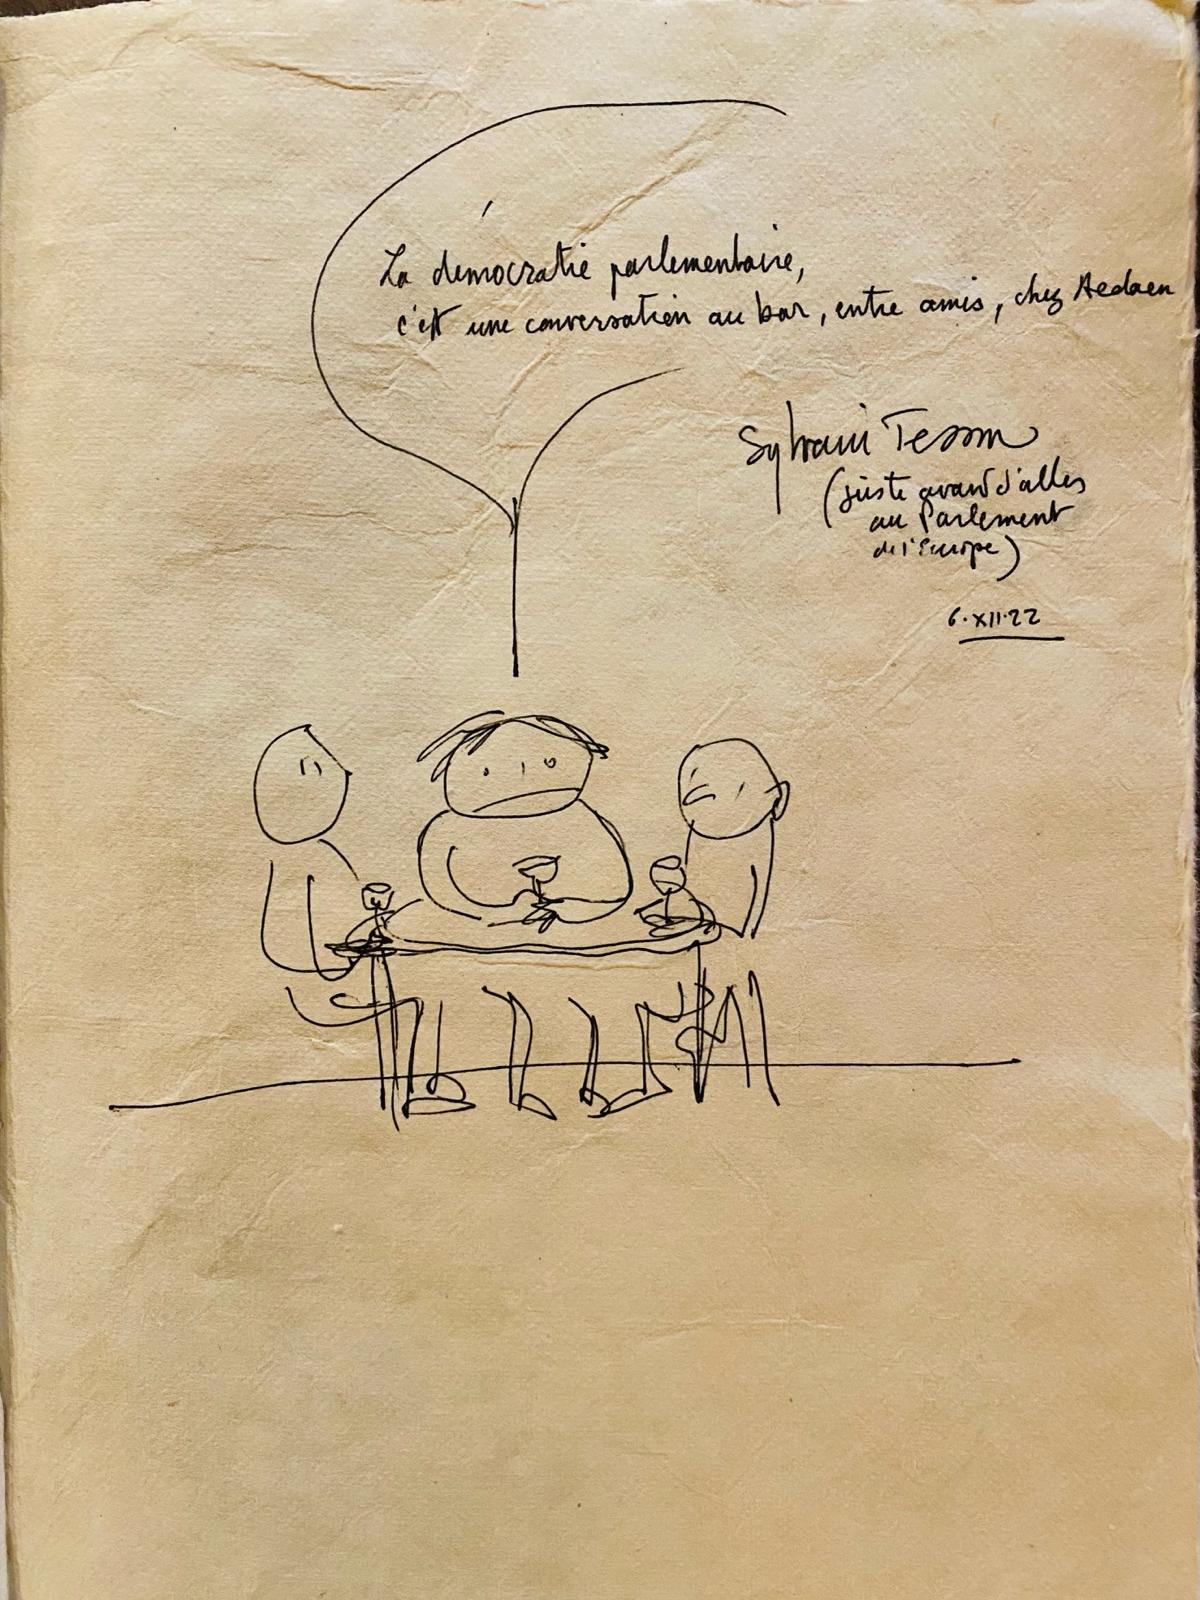 La démocratie parlementaire,
c'est une conversation au bar, entre amis, chez Aedaen
Sylvain Tesson
(juste avant d'aller
au Parlement
de l'Europe)
6.XII.22